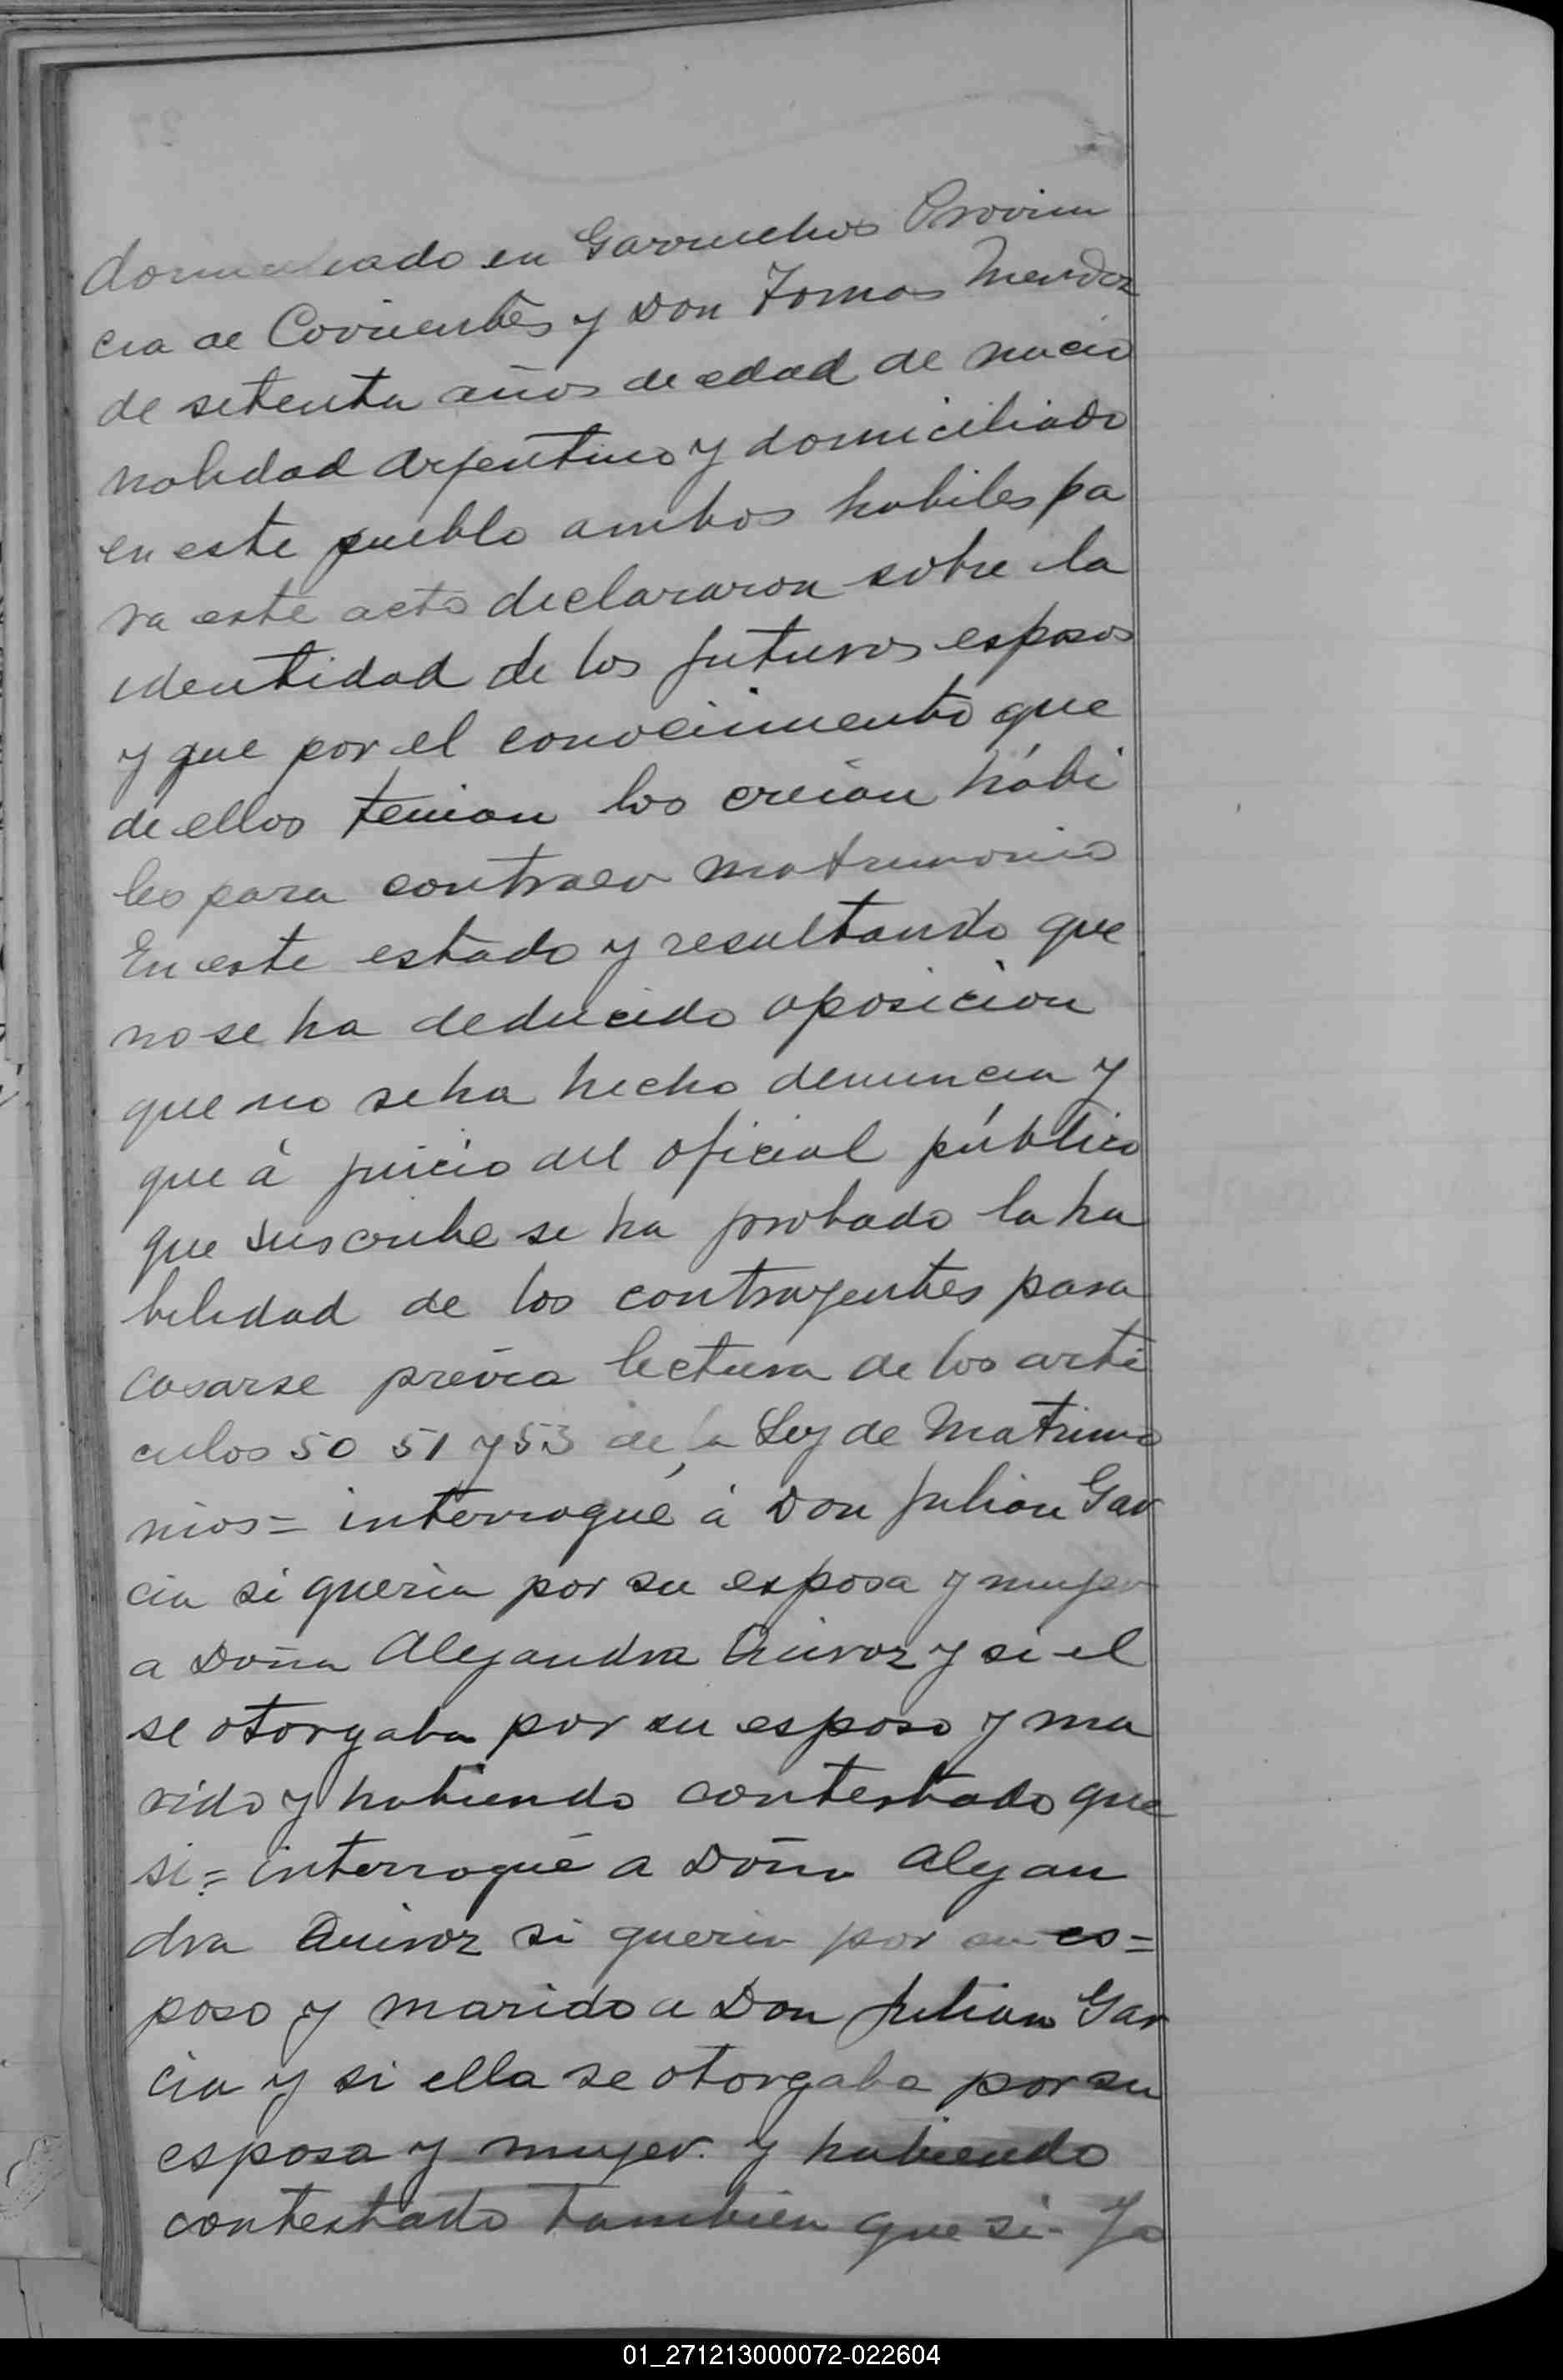 domiciliado en Garruchos Provin
cia de Corrientes y Don Tomas Mendoz
de setenta años de edad de nacio
nalidad Argentino y domiciliado
en este pueblo ambos habiles pa
ra este acto declararon sobre la
identidad de los futuros esposos
y que por el conocimiento que
de ellos tenian los creian hábi
les para contraer matrimonio
En este estado y resultando que
no se ha deducido oposicion
que no se ha hecho denuncia y
que á juicio del oficial público
que suscribe se ha probado la ha
bilidad de los contrayentes para
casarse prévia lectura de los arti
culos 50 51 y 53 de la Ley de Matrimo
nios = interrogué á Don Julian Gar
cia si queria por su esposa y mujer
a Doña Alejandra Quiroz y si el
se otorgaba por su esposo y ma
rido y habiendo contestado que
si = interrogué a Doña Alejan
dra Quiroz si queria por su es=
poso y marido a Don Julian Gar
cia y si ella se otorgaba por su
esposa y mujer. y habiendo
contestado tambien que si - Yo
01_271213000072-022604